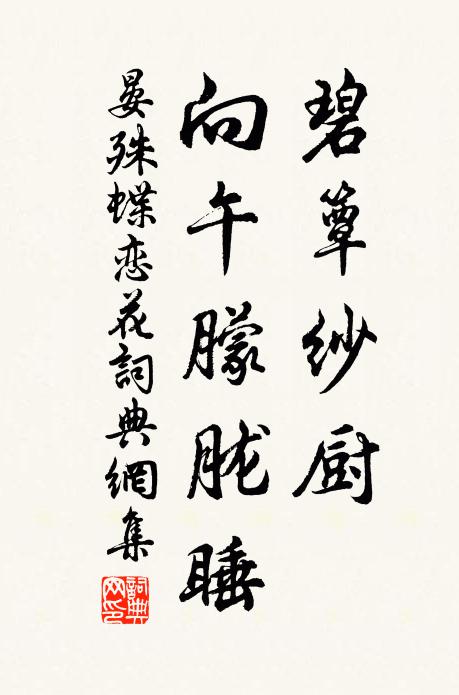 碧簟纱厨
向午朦胧睡
晏殊蝶恋花詞典網集
詞典网印